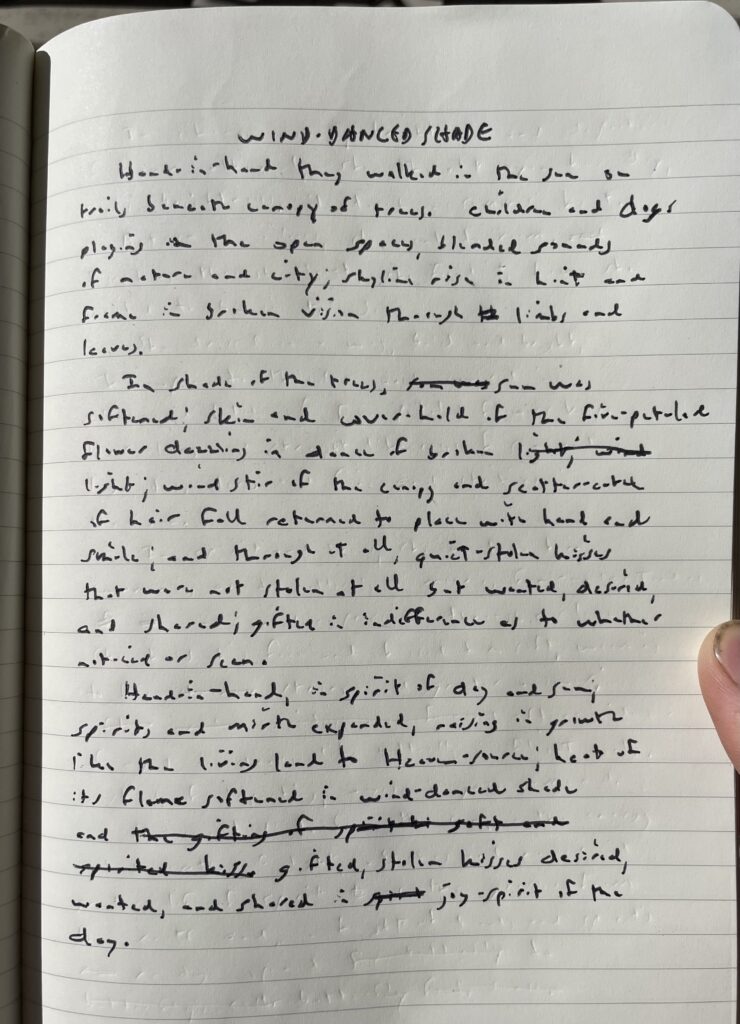 WIND-DANCED SHADE
Hand-in-hand they walked in the sun on
trails beneath canopy of trees. Children and dogs
playing in the open spaces, blended sounds
of nature and city; skyline rise in hint and
frame in broken vision through limbs and
leaves.
In shade of the trees, sun was
softened; skin and cover-hold of the five-petaled
flower dazzling in dance of broken light; wind
light; wind stir of the canopy and scatter-catch
of hair fall returned to place with hand and
smile; and through it all, quiet-stolen kisses
that were not stolen at all but wanted, desired,
and shared; gifted in indifference as to whether
noticed or seen.
Hand-in-hand, in spirit of day and sun,
spirits and mirth expanded, raising in growth
like the living land to Heaven-source; heat of
its flame softened in wind-danced shade
and the gifting of spirit in soft and
spirited kiss gifted, stolen kisses desired,
wanted, and shared in joy-spirit of the
day.